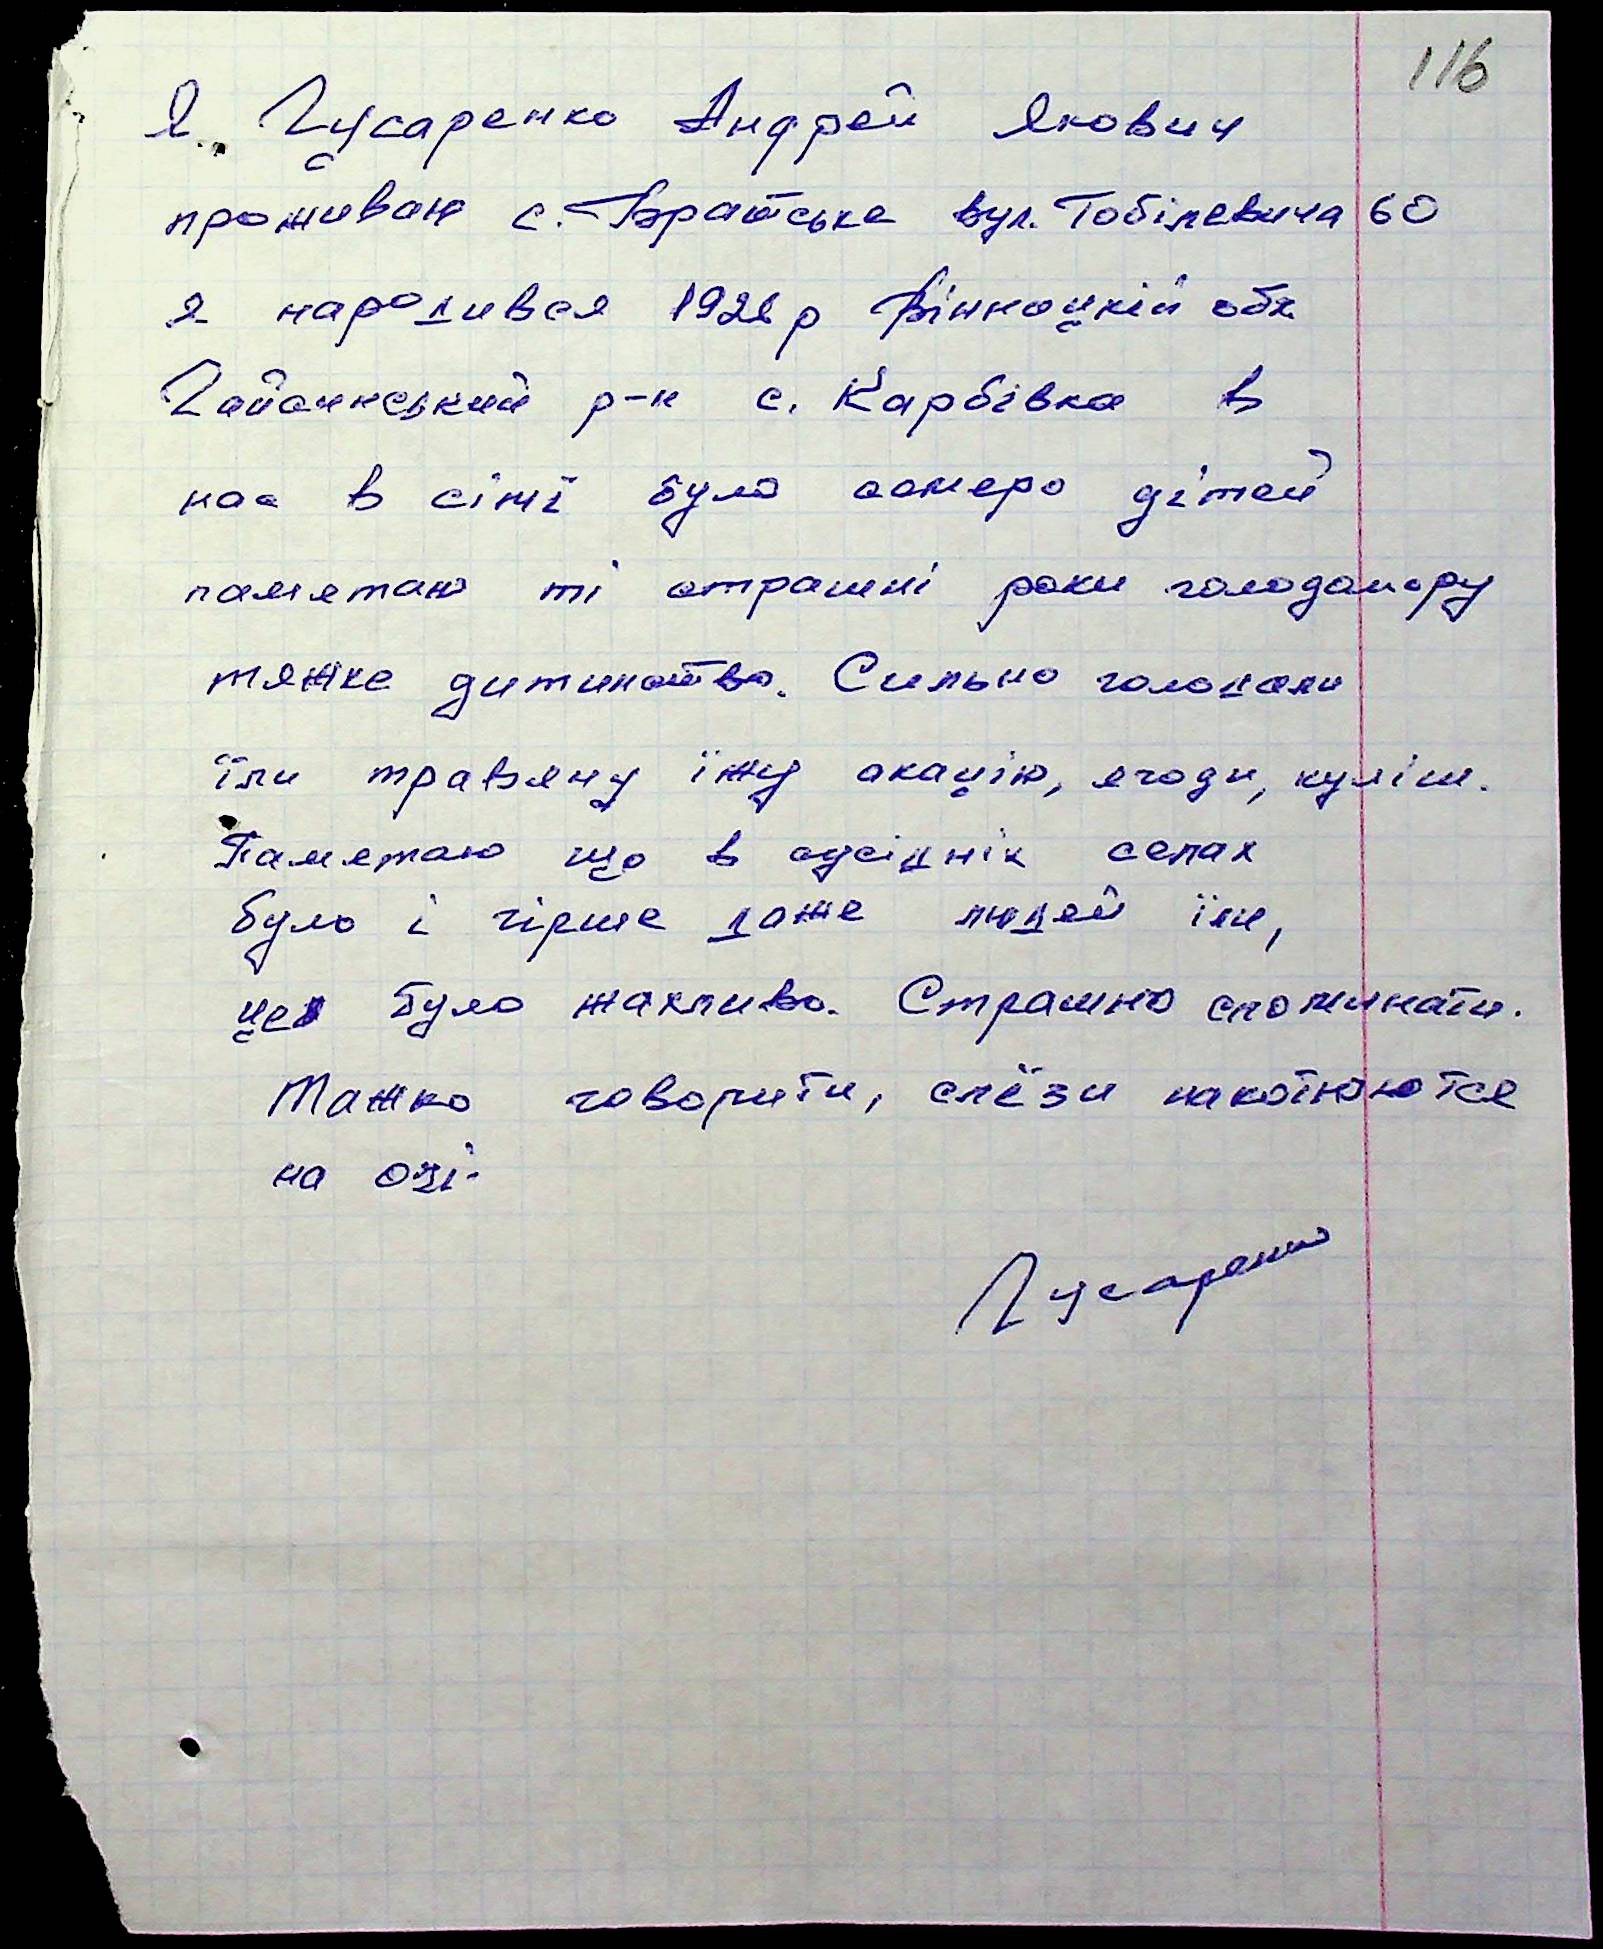 116
Я, Гусаренко Андрей Якович
проживаю с. Братське вул. Тобілевича 60
я народився 192 р Вінноцкій обл
Гайсинський р-н с. Карбівка в
нас в сімї було семеро дітей
паметаю ті страшні роки голодомору
тяжке дитинство. Сильно голодали
їли травяну їжу акацію, ягоди, куліш.
Паметаю що в сусідніх селах
було і гірше даже людей їли,
це було жахливо. Страшно споминати.
Тяжко говорити, слёзи накотюються
на очі.
Гусаренко